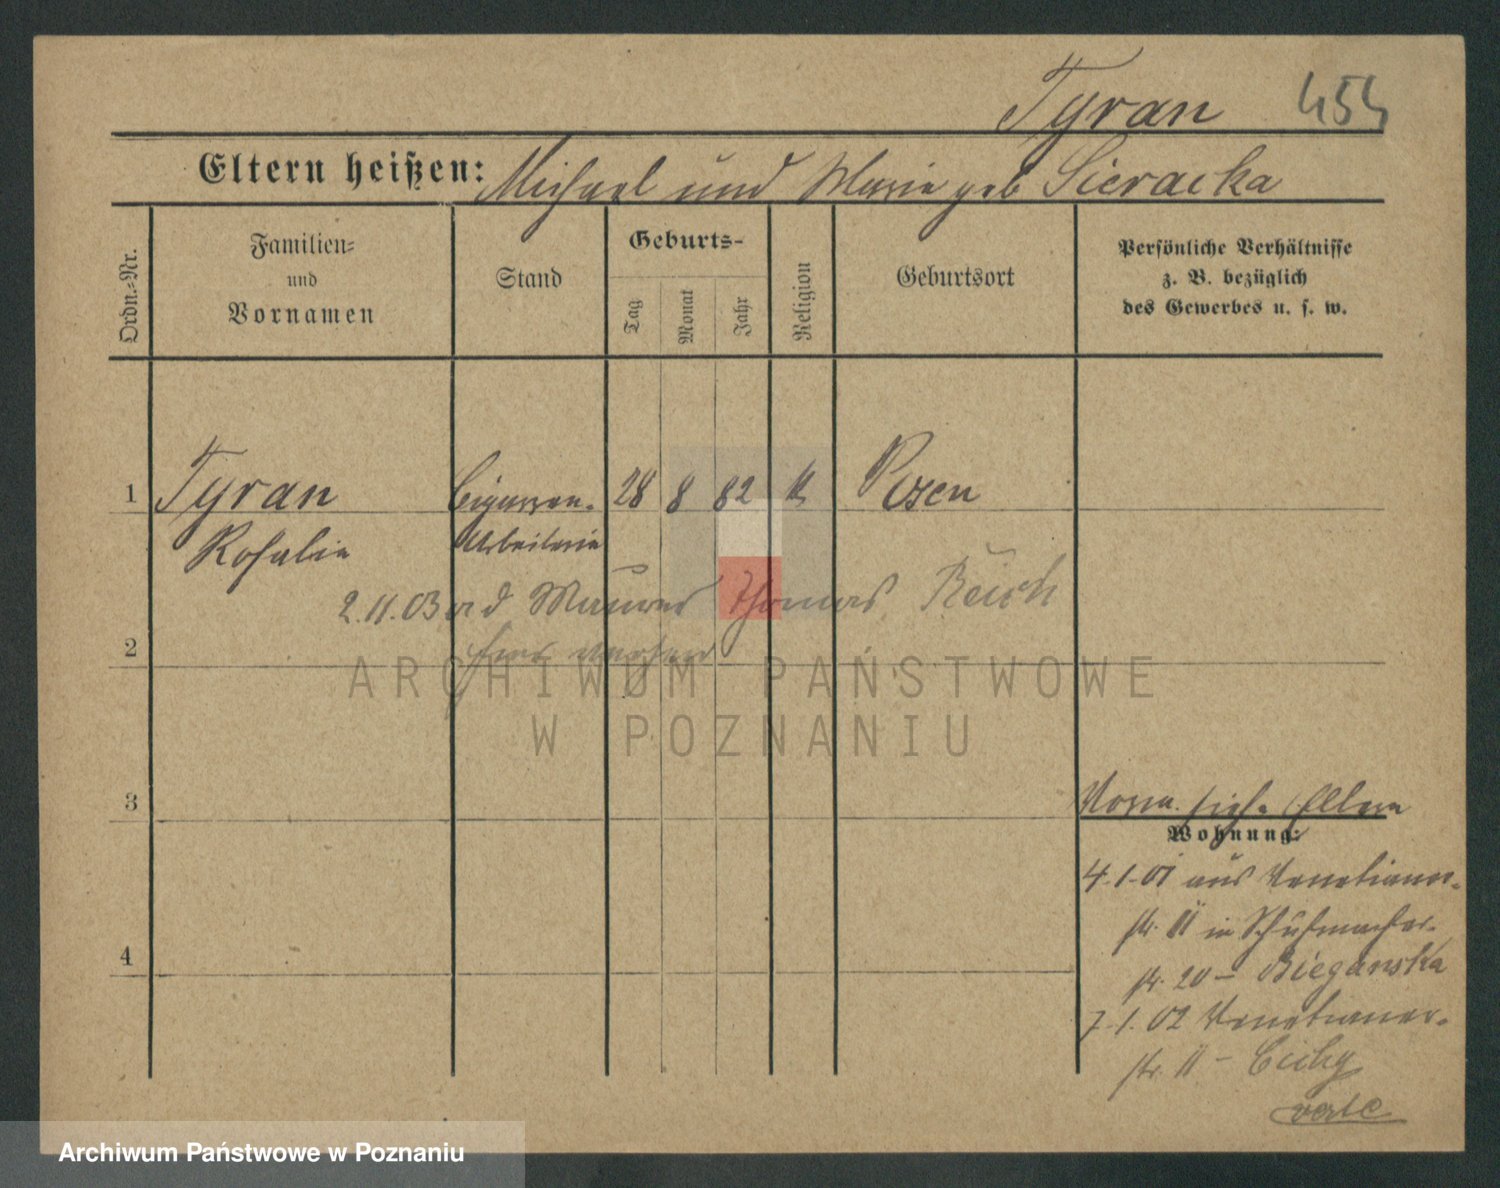 Tyran 454
Eltern heißen: Michael und Marie geb Sieracka
Ordn.-Nr.
Familien-
und
Vornamen
Stand
Geburts-
Tag
Monat
Jahr
Religion
Geburtsort
Persönliche Verhältnisse
z. B. bezüglich
des Gewerbes u. s. w.
1 Tyran Cigarren- 28 8 82 k Posen
Rosalie Arbeiterin
2.11.03 ad Maurer Thomas Reich
2
ARCHIWUM PAŃSTWOWE
W POZNANIU
3
Vorm. siehe Eltern
Wohnung:
4.1.01 aus Venetianer-
str. 11 in Schuhmacher-
4
str. 20 – Bieganska
7.1.02 Venetianer-
str. 11 – Cichy
verte
Archiwum Państwowe w Poznaniu